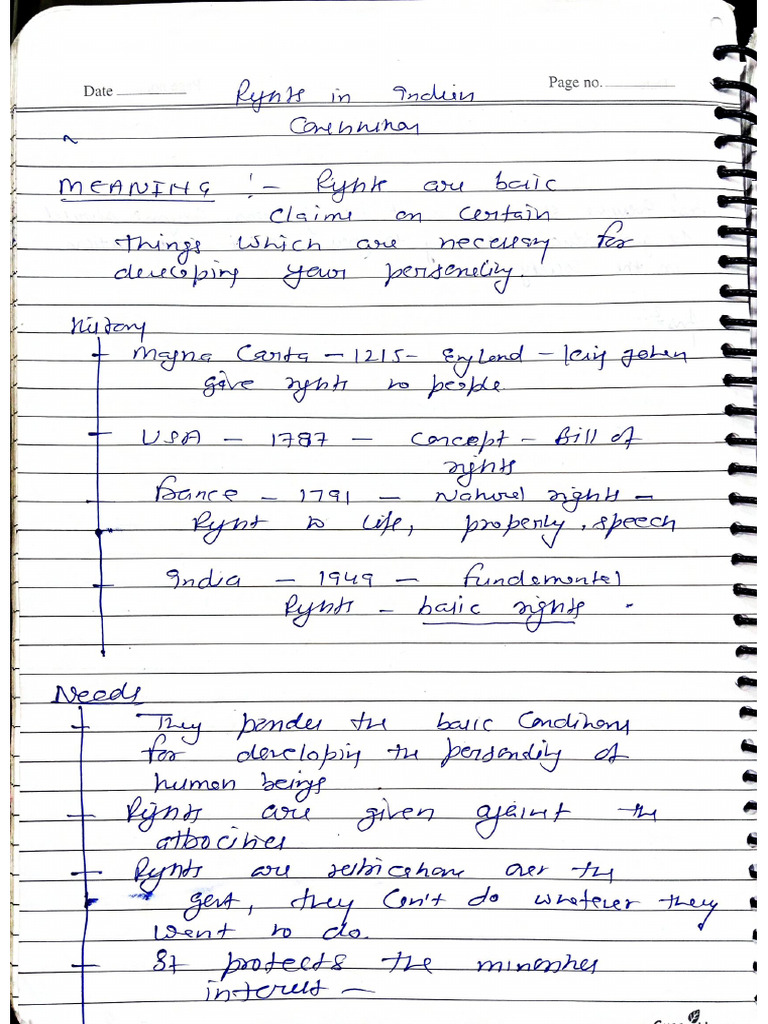 Date
Page no.
Rights in Indian
Constitution
MEANING :- Rights are basic
claims on certain
things which are necessary for
developing your personality.
History
Magna Carta - 1215 - England - King John
give rights to people
USA - 1787 - Concept - Bill of
rights
France - 1791 - Natural rights -
Right to life, property, speech
India - 1949 - Fundamental
Rights - basic rights
Needs
They the basic Conditions
for developing the personality of
human beings
Rights are given against the
atrocities
Rights are restrictions over the
govt, they can't do whatever they
want to do.
It protects the minorities
interest -